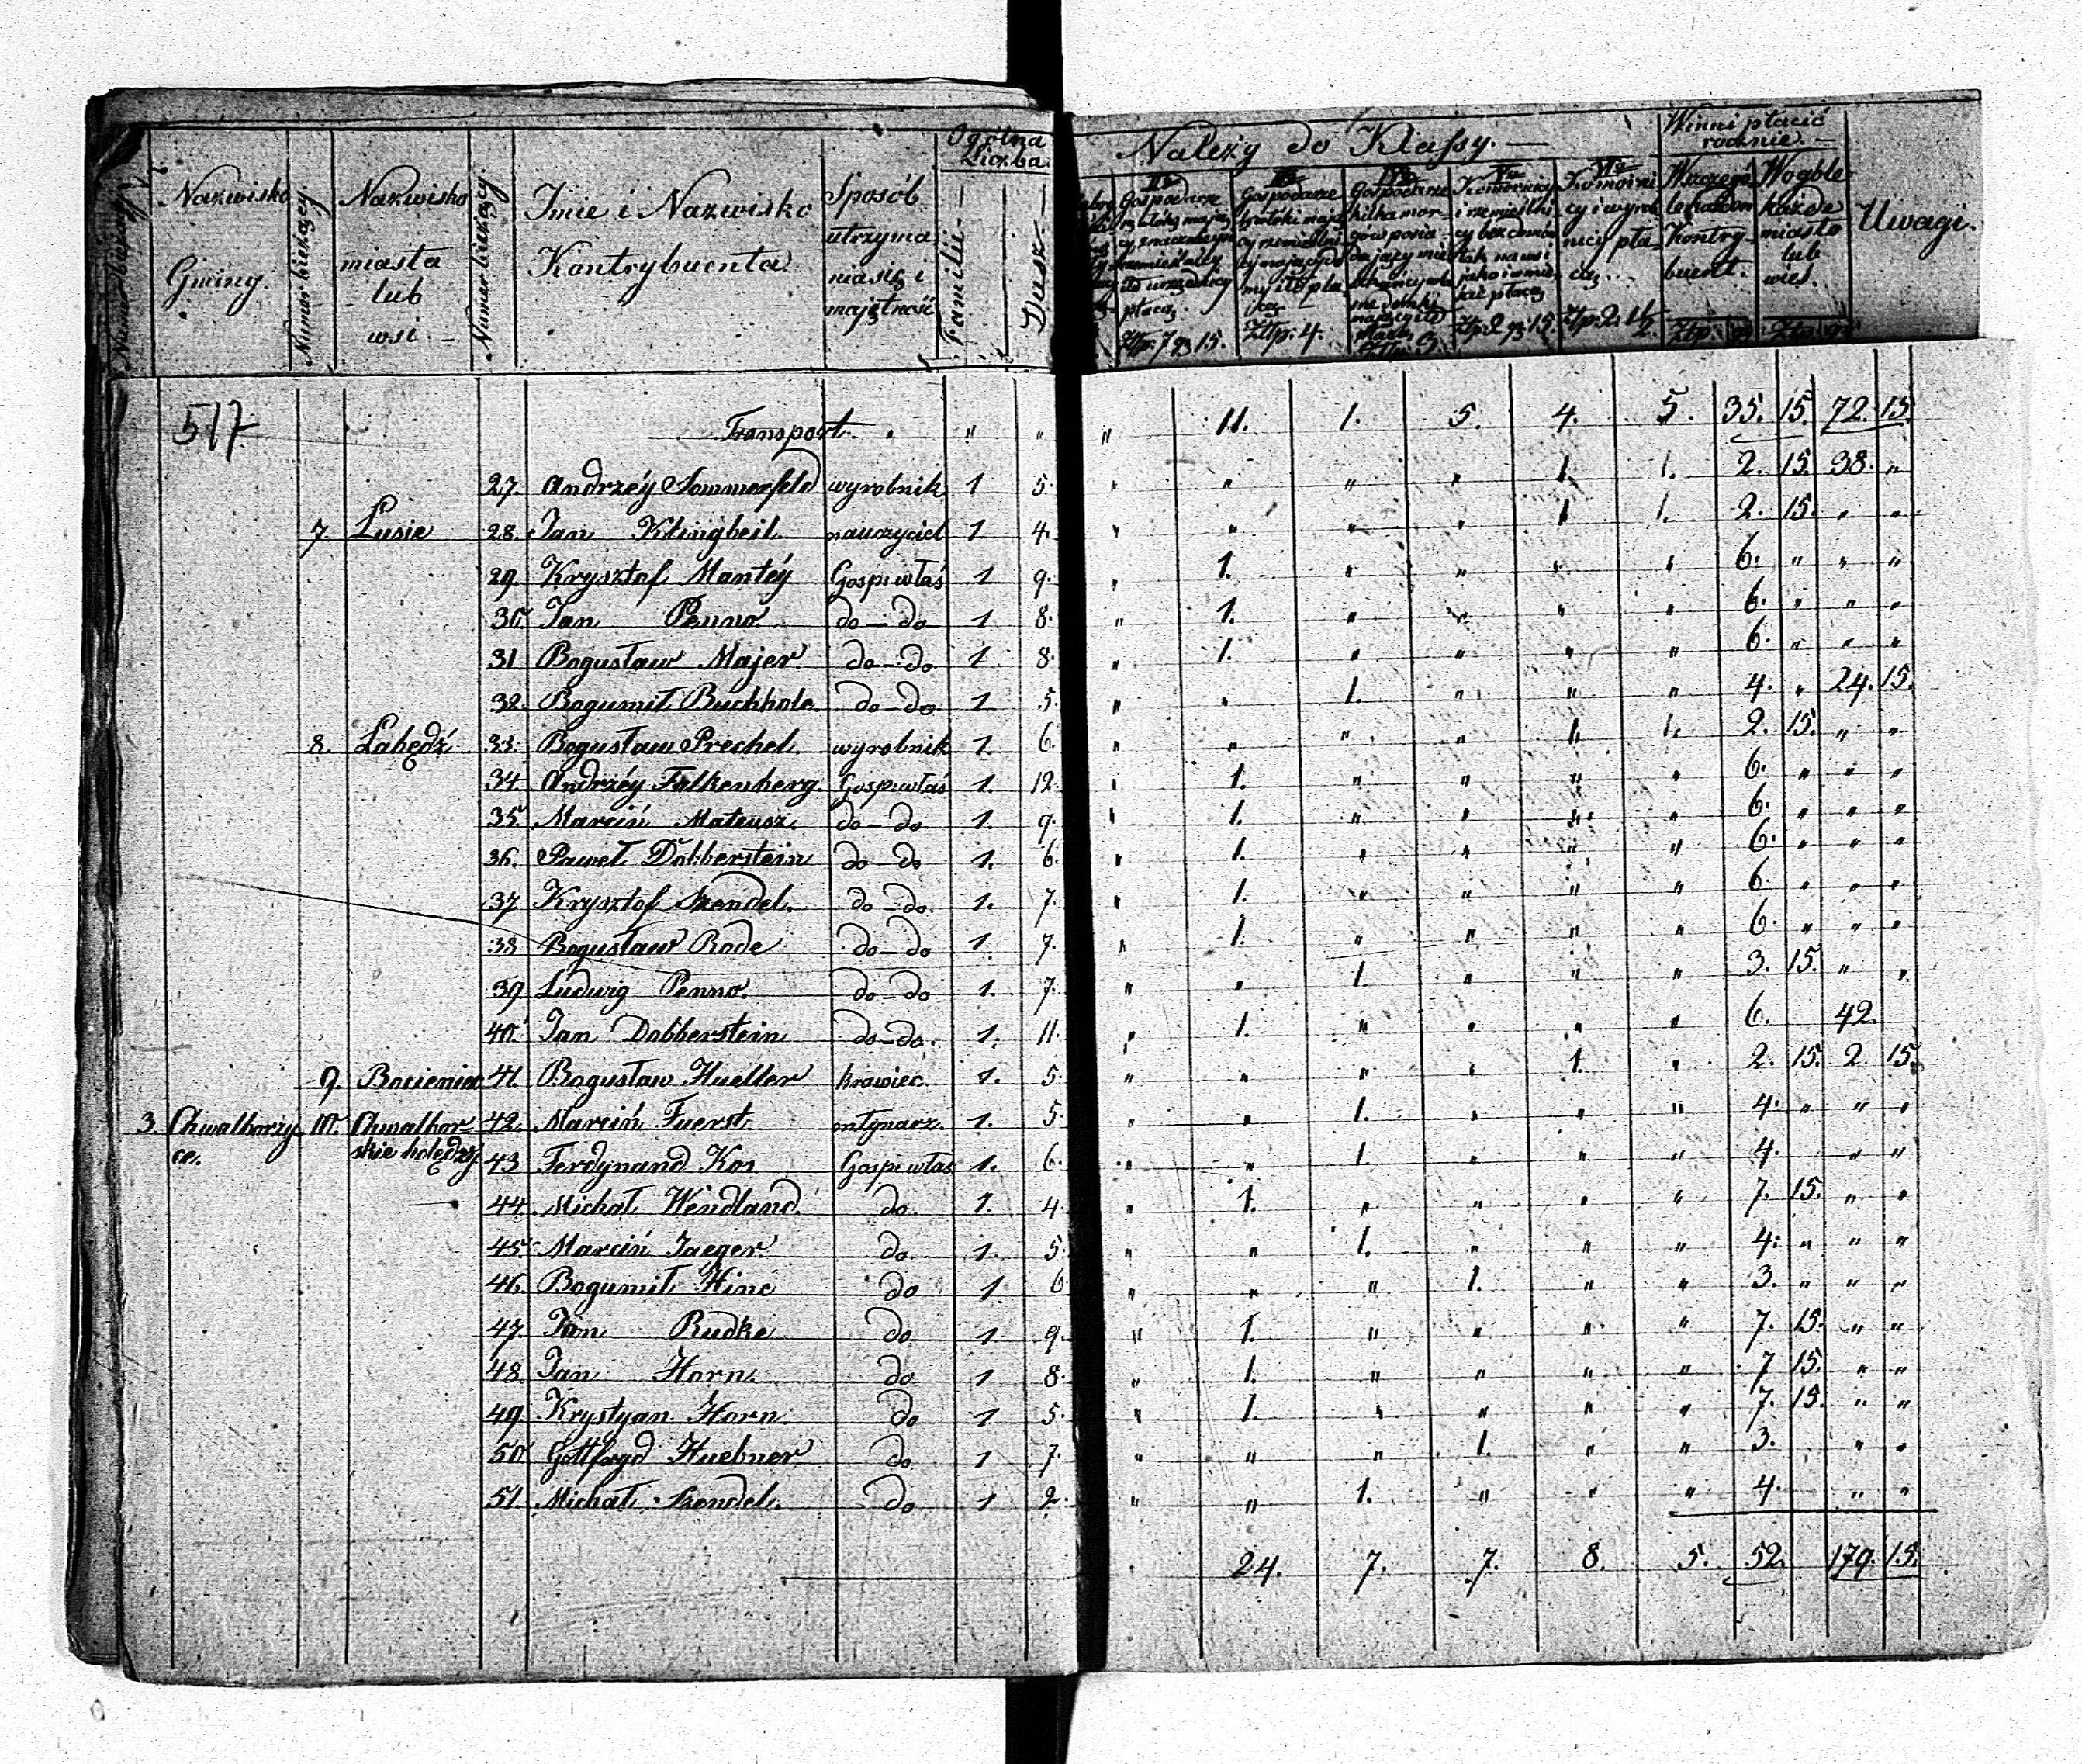 Nazwisko Gminy.
Numer bieżący.
Nazwisko miasta lub wsi.
Numer bieżący.
Imie i Nazwisko Kontrybuenta
Sposób utrzyma niasię i majętność
Ogólna Liczba
Familii
Dusz
Należy do Klassy.
IIa Gospodarze
płacą Złp: 7 gr 15.
Gospodarze
Złp: 4.
Gospodarze kilka mor gów posia
Va Komornicy i rzemieślni cy
Złp: 2 gr 15.
VIa Komorni cy i wyrob nicy pła cą
Winni płacić rocznie.
Wszczegó
Kontry buent.
Złp: gr
Wogóle każde miasto lub wieś.
Złp: gr:
Uwagi.
517 Transport. " " " 11. 1. 5. 4. 5. 35. 15. 72. 15.
27. Andrzéy Sommerfeld wyrobnik 1 5. " " " " 1. 1. 2. 15. 38. "
7. Lusie 28. Jan Klingbeil nauczyciel 1 4. " " " " 1 1. 2. 15. " "
29. Krysztof Mantéy Gosp: właś 1 9. " 1. " " " " 6. " " "
30. Jan Penno do — do 1. 8. " 1. " " " " 6. " " "
31 Bogusław Majer do — do 1 8. " 1. " " " " 6. " " "
32. Bogumił Buchholc do — do 1 5. " " 1. " " " 4. " 24. 15.
8. Łabędź 33. Bogusław Prechel wyrobnik 1. 6. " " " " 1. 1. 2. 15. " "
34. Andrzéy Falkenberg. Gosp: właś 1. 12. " 1. " " " " 6. " " "
35. Marciń Mateusz. do — do 1. 9. " 1. " " " " 6. " " "
36. Paweł Dobberstein do — do 1. 6. " 1. " " " " 6. " " "
37 Krysztof Szendel. do — do. 1. 7. " 1. " " " " 6. " " "
38 Bogusław Rode do — do 1. 7. " 1. " " " " 6. " " "
39 Ludwig Penno. do — do 1. 7. " " 1. " " " 3. 15. " "
40. Jan Dobberstein do — do. 1. 11. " 1. " " " " 6. 42.
9. Bocieniec 41. Bogusław Hueller krawiec. 1. 5. " " " " 1. " 2. 15. 2. 15.
3. Chwalborzy ce. 10. Chwalbor skie holędry 42. Marciń Fuerst młynarz. 1. 5. " " 1. " " " 4. " " "
43 Ferdynand Kos Gosp: właś 1. 6. " " 1. " " " 4. " "
44. Michał Wendland. do 1. 4. " 1. " " " " 7. 15. " "
45. Marciń Jaeger do 1. 5. " " 1. " " " 4. " " "
46. Bogumił Hinc do 1 6 " " " 1. " " 3. " " "
47 Jan Rudke do 1 9. " 1. " " " " 7. 15. " "
48. Jan Horn. do 1 8. " 1. " " " " 7 15. " "
49. Krystyan Horn do 1 5. " 1. " " " " 7. 15. " "
50 Gottfryd Huebner do 1 7. " " " 1. " " 3. " "
51. Michał Szendel. do 1 2. " " 1. " " " 4. " "
24. 7. 7. 8. 5. 52. 179. 15.